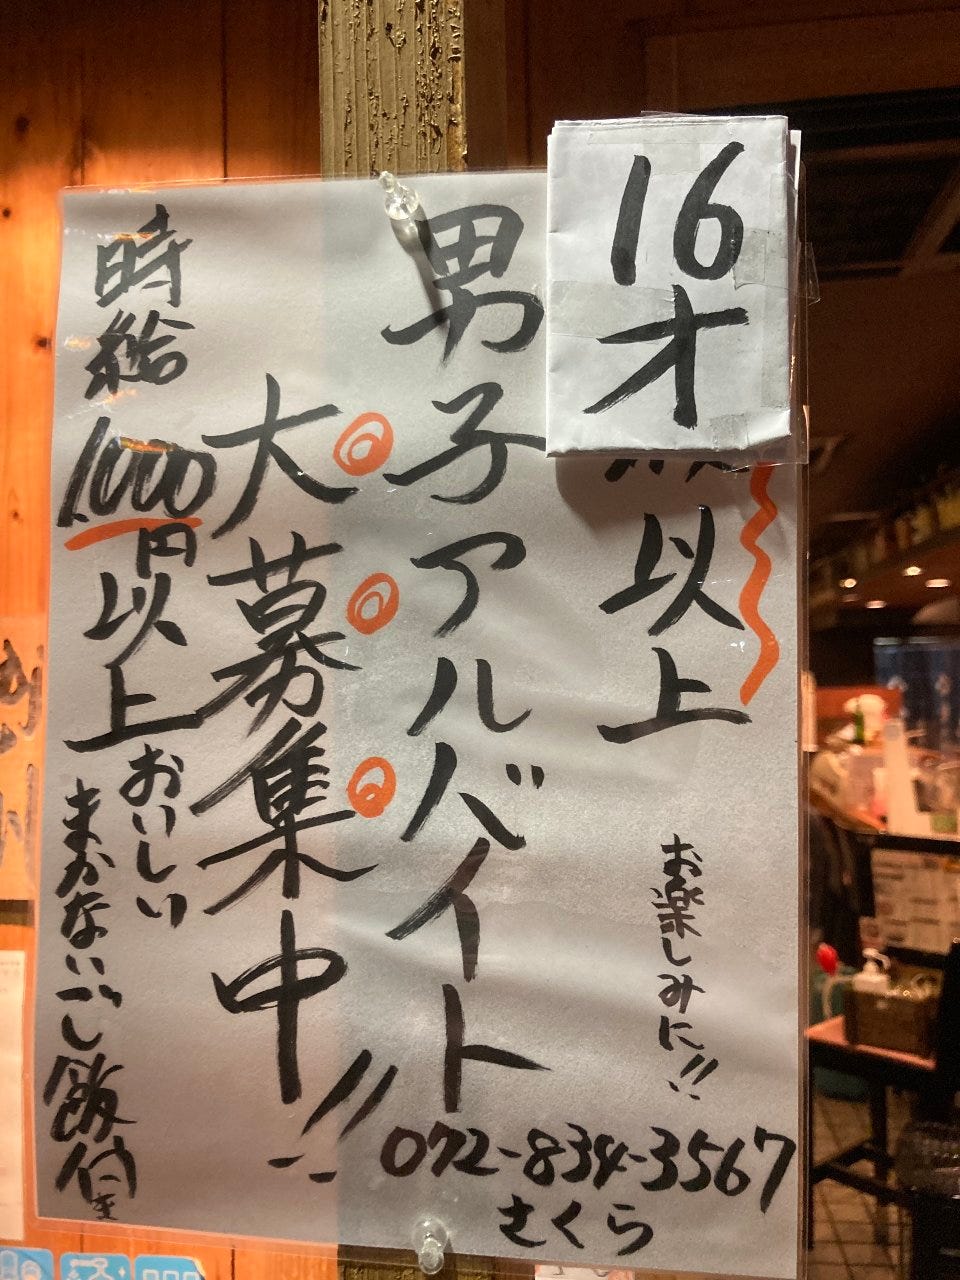 16才
以上
お楽しみに!!
男子アルバイト
大募集中!!
時給1,000円以上
おいしい
まかないご飯付き
072-834-3567
さくら